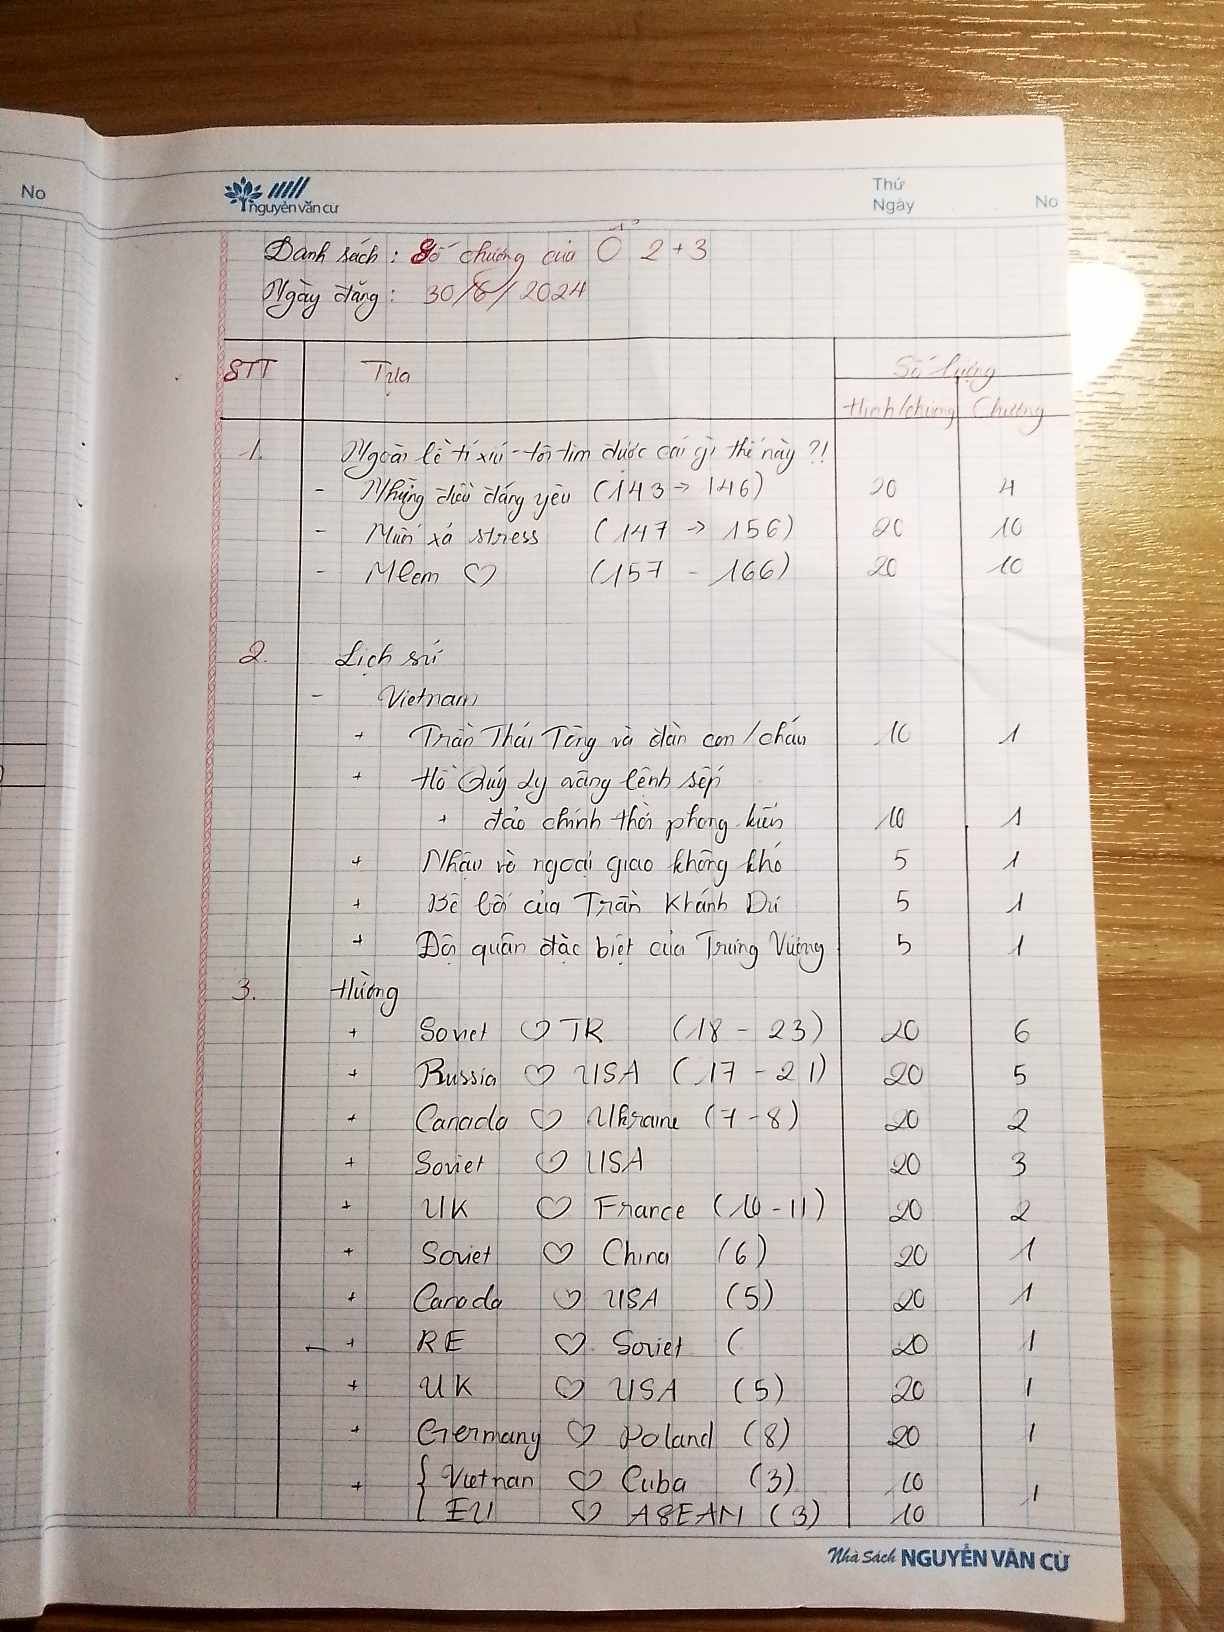 No
nguyễn văn cừ
Thứ
Ngày
No
Danh sách : Số chương của Ổ 2 + 3
Ngày đăng : 30/8/2024
STT Tựa Số lượng
Hình/chương Chương
1. Ngoài lề tí xíu - tôi tìm được cái gì thế này ?!
- Những điều đáng yêu (143 → 146) 20 4
- Muốn xả stress (147 → 156) 20 10
- Mlem ♡ (157 - 166) 20 10
2. Lịch sử
- Vietnam
+ Trần Thái Tông và đàn con/cháu 10 1
+ Hồ Quý Ly vâng lệnh sếp
+ đảo chính thời phong kiến 10 1
+ Nhậu vì ngoại giao không khó 5 1
+ Bê bối của Trần Khánh Dư 5 1
+ Đội quân đặc biệt của Trưng Vương 5 1
3. Hường
+ Soviet ♡ TR (18 - 23) 20 6
+ Russia ♡ USA (17 - 21) 20 5
+ Canada ♡ Ukraine (7 - 8) 20 2
+ Soviet ♡ USA 20 3
+ UK ♡ France (10 - 11) 20 2
+ Soviet ♡ China (6) 20 1
+ Canada ♡ USA (5) 20 1
- + RE ♡ Soviet ( 20 1
+ UK ♡ USA (5) 20 1
+ Germany ♡ Poland (8) 20 1
+ { Vietnan ♡ Cuba (3) 10 1
EU ♡ ASEAN (3) 10
Nhà Sách NGUYỄN VĂN CỪ